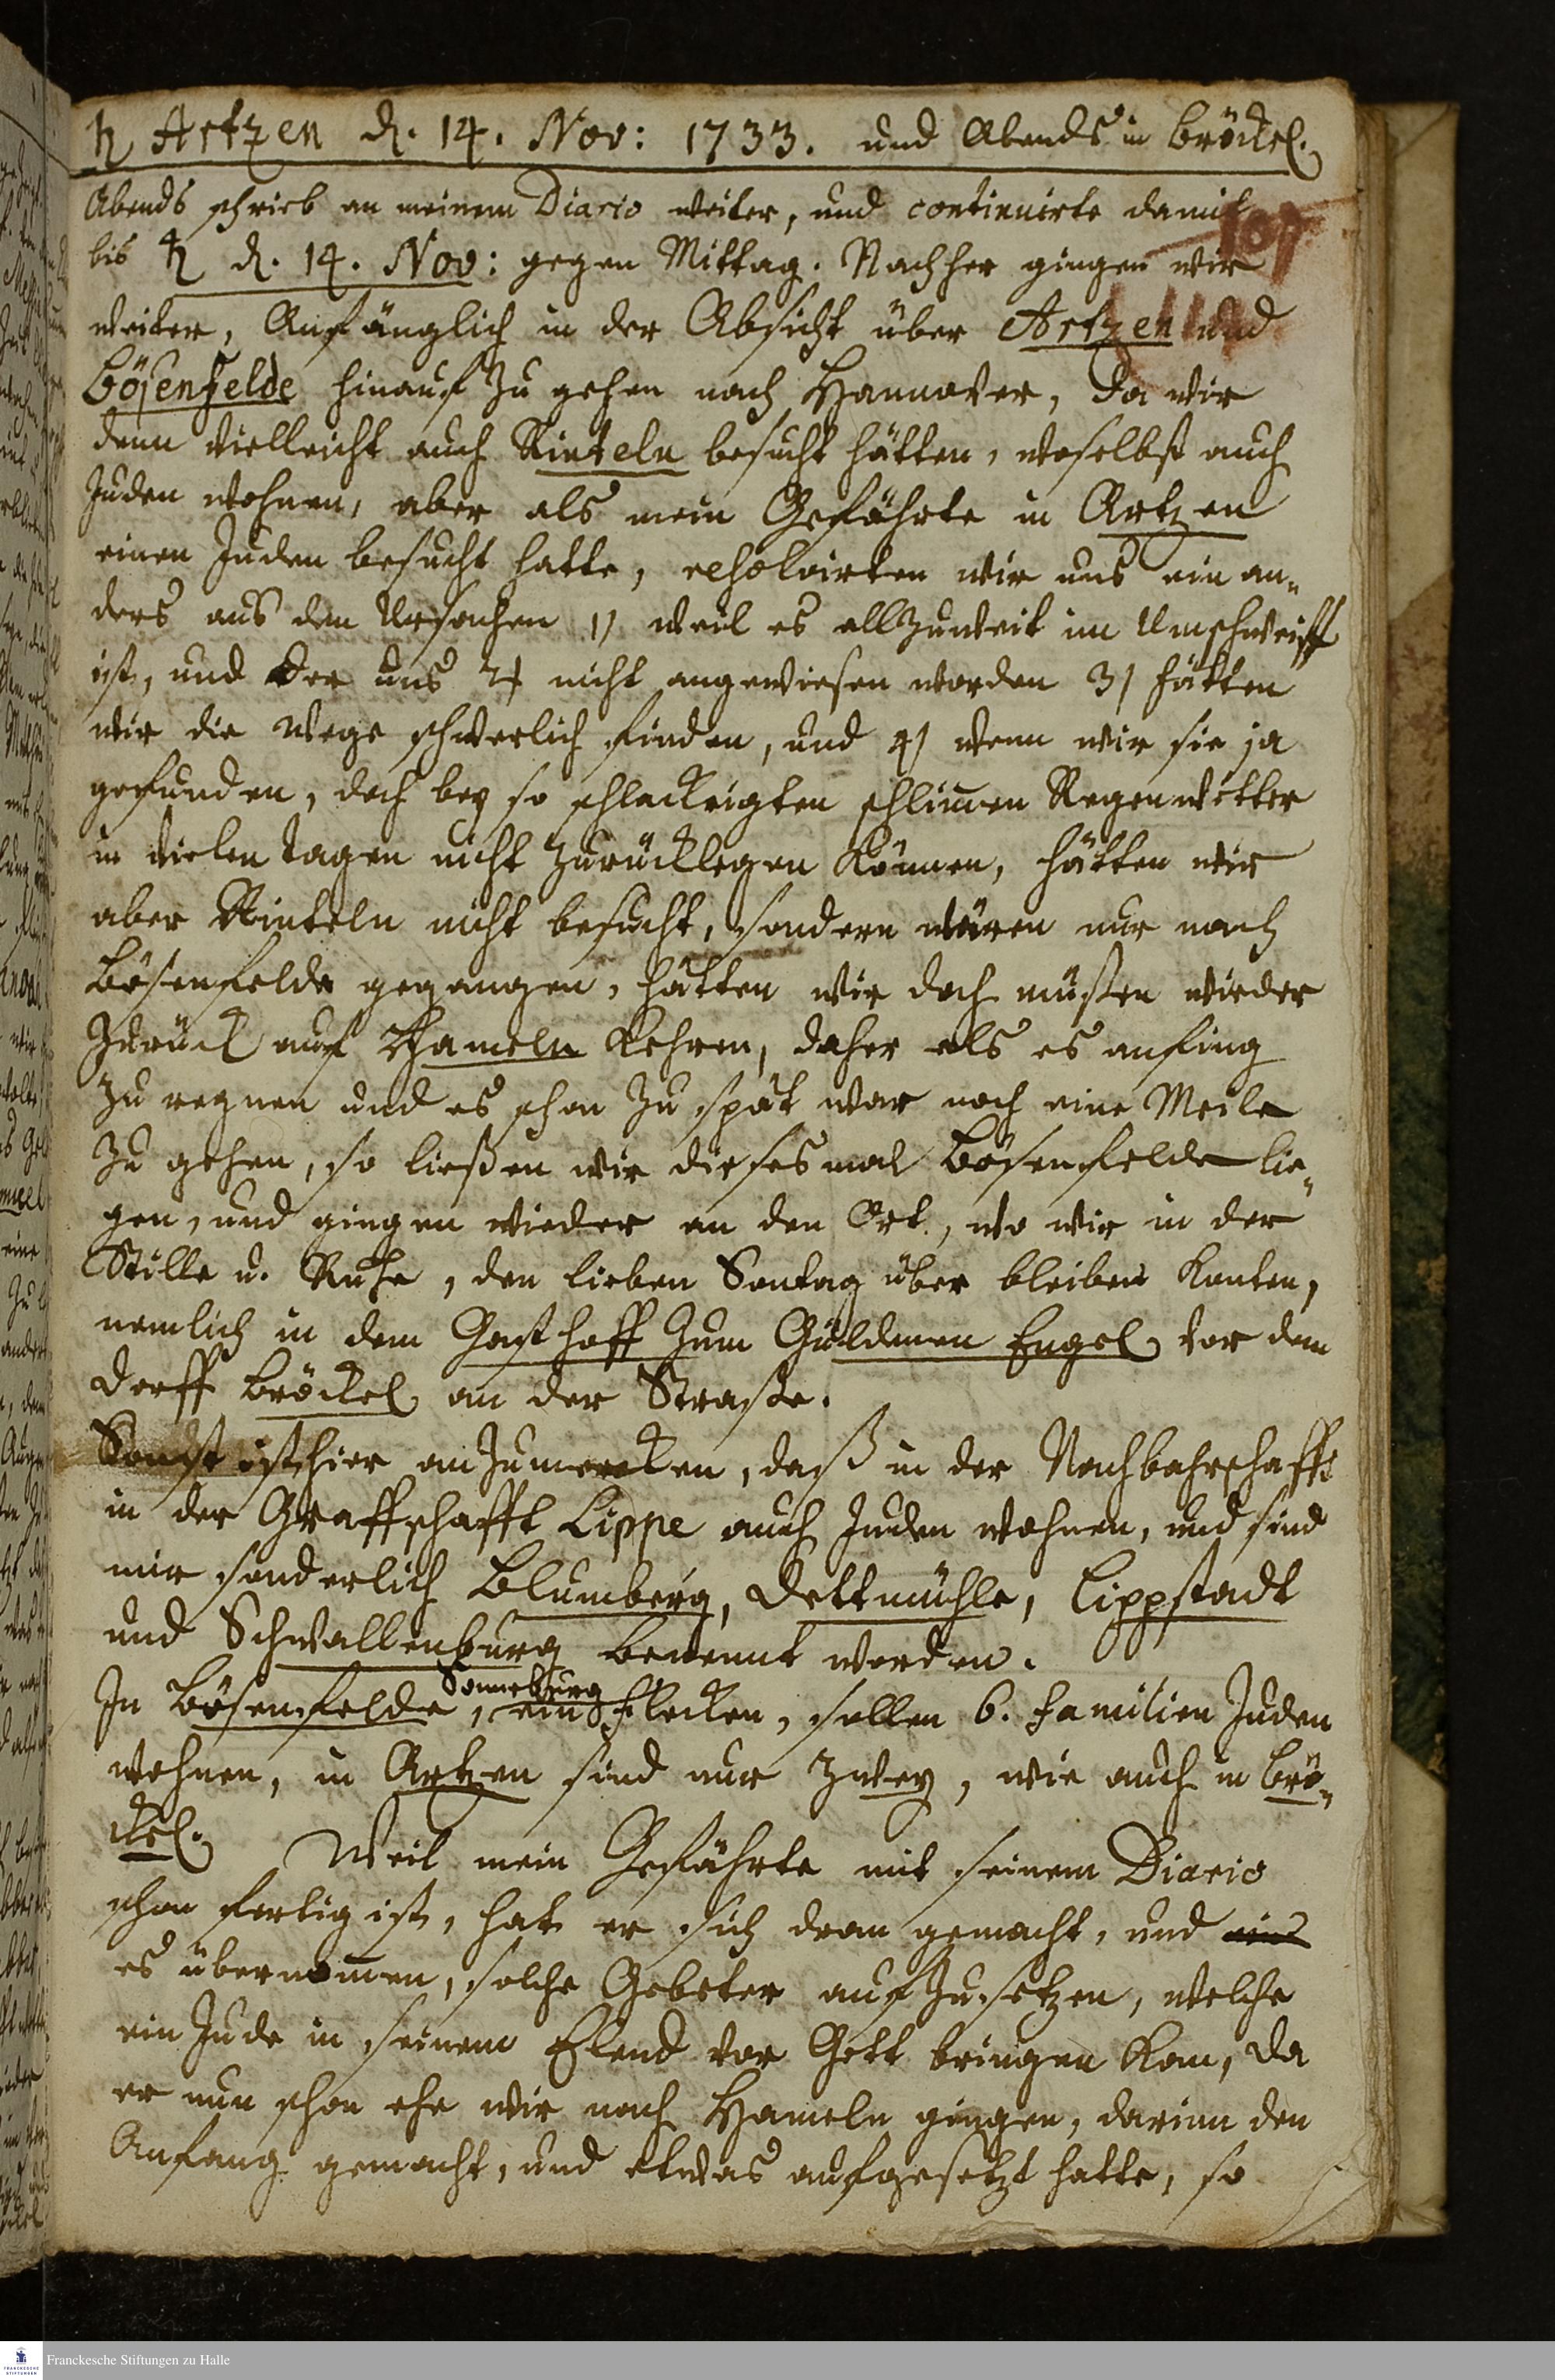 ♄ Artzen d. 14. Nov: 1733. und Abends in Bröckel.
Abends schrieb an meinem Diario weiter, und continuirte damit
107
bis ♄ d. 14. Nov: gegen Mittag. Nachher gingen wir
weiter, Anfänglich in der Absicht über Artzen und
Bösenfelde hinauf zu gehen nach Hannover, da wir
denn vielleicht auch Rinteln besucht hätten, woselbst auch
Juden wohnen, aber als mein Gefährte in Artzen
einen Juden besucht hatte, resolvirten wir uns ein an-
ders aus den Ursachen 1) weil es allzuweit im Umschweiff
ist, und der uns 2) nicht angewiesen worden 3) hätten
wir die Wege schwerlich finden, und 4) wenn wir sie ja
gefunden, doch bey so schlackrigten schlim̄en Regenwetter
in vielen Tagen nicht zurücklegen können, hätten wir
aber Rinteln nicht besucht, sondern wären nur nach
Bösenfelde gegangen, hätten wir doch müßen wieder
zurück auf Hameln kehren, daher als es anfing
zu regnen und es schon zu spät war noch eine Meile
zu gehen, so ließen wir dieses mal Bösenfelde lie-
gen, und gingen wieder an den Ort, wo wir in der
Stille u. Ruhe, den lieben Sontag über bleiben konten,
nemlich in dem Gasthoff zum Güldenen Engel vor dem
Dorff Bröckel an der Straße.
Sonst ist hier anzumercken, daß in der Nachbahrschafft
in der Graffschafft Lippe auch Juden wohnen, und sind
mir sonderlich Blumberg, Dettmühle, Lippstadt
und Schwallenburg benennt worden.
Sonneburg
In Bösenfelde, ein Flecken, sollen 6. Familien Juden
wohnen, in Artzen sind nur zwey, wie auch in Brö-
ckel. Weil mein Gefährte mit seinem Diario
schon fertig ist, hat er sich dran gemacht, und
es übernom̄en, solche Gebeter aufzusetzen, welche
ein Jude in seinem Elend vor Gott bringen kan, da
er nun schon ehe wir nach Hameln gingen, darinn den
Anfang gemacht, und etwas aufgesetzt hatte, so
Franckesche Stiftungen zu Halle